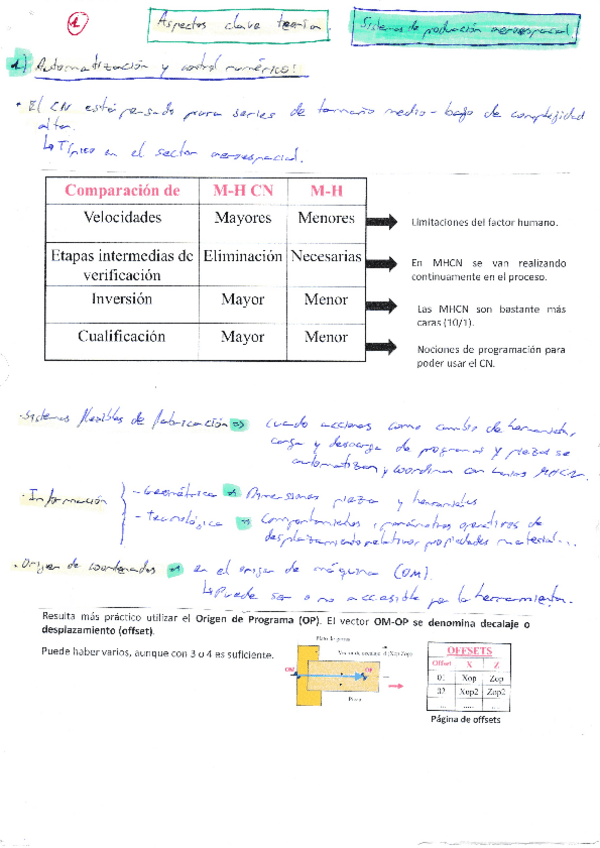 1
Aspectos clave teoría.
Sistemas de producción aeroespacial
1) Automatización y control numérico:
• El CN está pensado para series de tamaño medio-bajo de complejidad
alta.
↳ Típico en el sector aeroespacial.
Comparación de M-H CN M-H
Velocidades Mayores Menores
Limitaciones del factor humano.
Etapas intermedias de verificación Eliminación Necesarias
En MHCN se van realizando
continuamente en el proceso.
Inversión Mayor Menor
Las MHCN son bastante más
caras (10/1).
Cualificación Mayor Menor
Nociones de programación para
poder usar el CN.
· Sistemas flexibles de fabricación => cuando acciones como cambio de herramientas,
carga y descarga de programas y piezas se
automatizan y coordinan con varias MHCN.
· Información
- Geométrica => Dimensiones pieza y herramientas
- Tecnológica => Comportamientos, parámetros operativos de
desplazamiento relativos, propiedades material...
· Origen de coordenadas => en el origen de máquina (OM).
↳ Puede ser o no accesible por la herramienta.
Resulta más práctico utilizar el Origen de Programa (OP). El vector OM-OP se denomina decalaje o
desplazamiento (offset).
Puede haber varios, aunque con 3 o 4 es suficiente.
Plato de garras
OM
OP
Pieza
OFFSETS
Offset X Z
01 Xop Zop
02 Xop2 Zop2
... ..... .....
Página de offsets